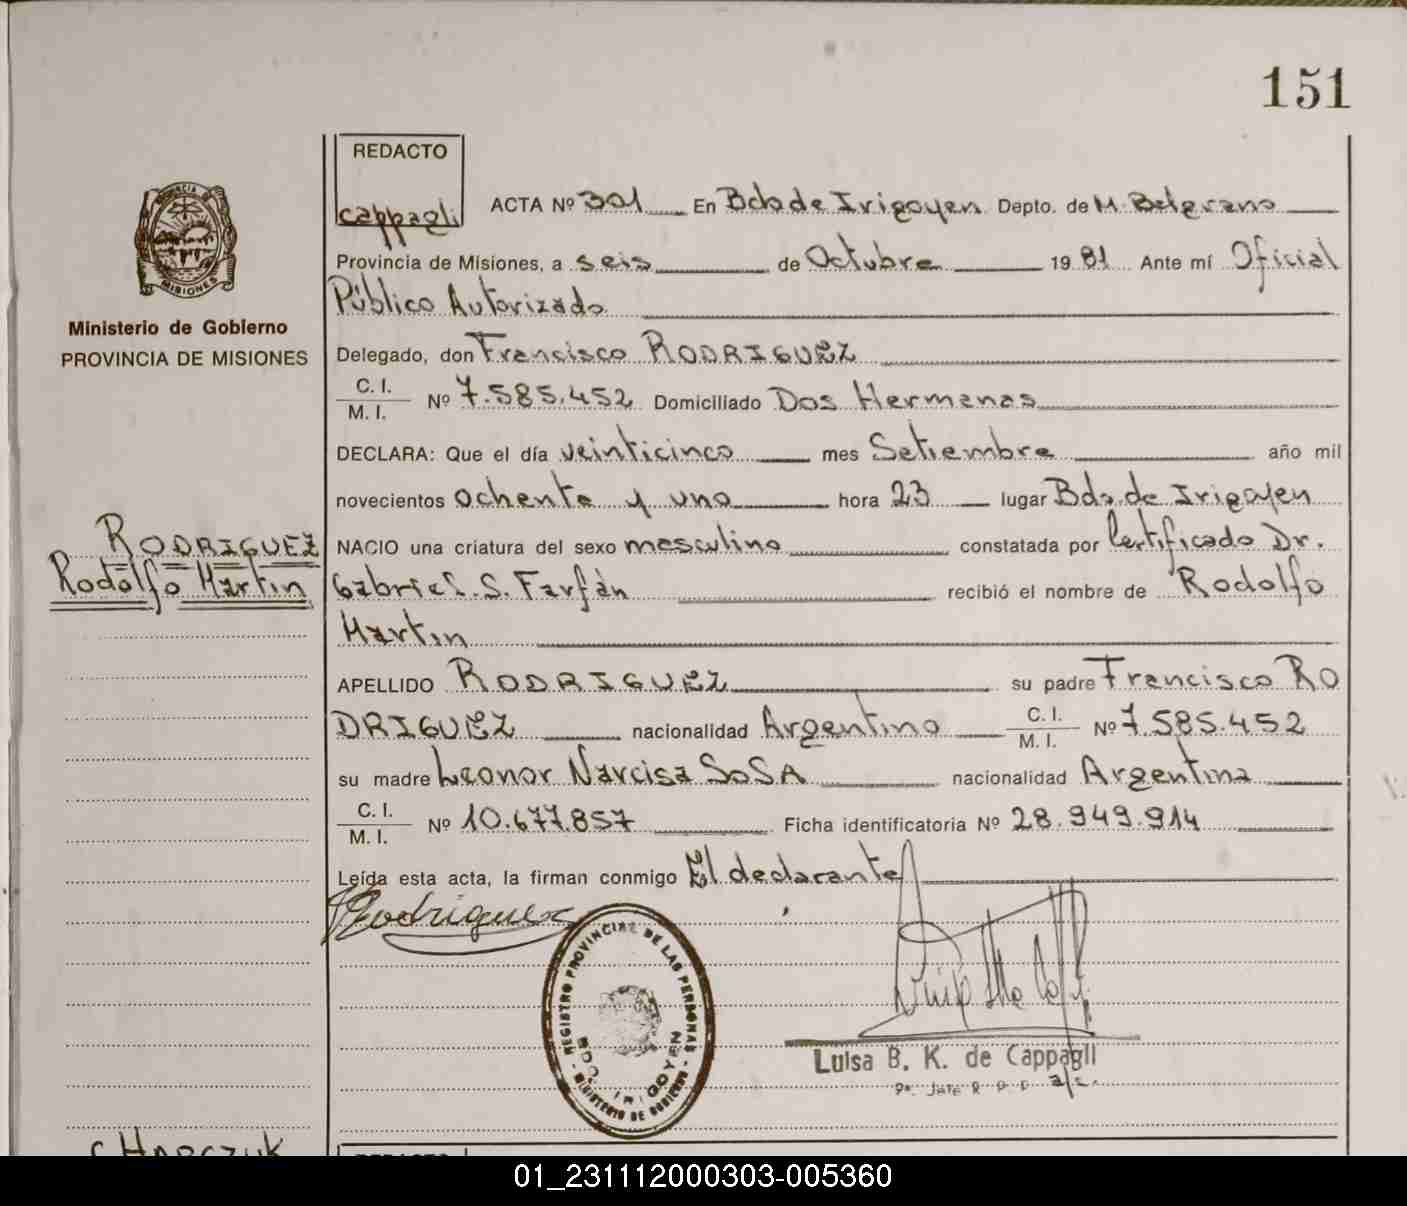 151
REDACTO
cappagli
MISIONES
Ministerio de Gobierno
PROVINCIA DE MISIONES
RODRIGUEZ
Rodolfo Martin
ACTA Nº 301 En Bdo de Irigoyen Depto. de M. Belgrano
Provincia de Misiones, a seis de Octubre 19 81 Ante mí Oficial
Público Autorizado
Delegado, don Francisco RODRIGUEZ
C. I.
M. I. Nº 7.585.452 Domiciliado Dos Hermanas
DECLARA: Que el día veinticinco mes Setiembre año mil
novecientos ochenta y uno hora 23 lugar Bdo. de Irigoyen
NACIO una criatura del sexo masculino constatada por Certificado Dr.
Gabriel. S. Farfán recibió el nombre de Rodolfo
Martin
APELLIDO RODRIGUEZ su padre Francisco RO
DRIGUEZ nacionalidad Argentino C. I.
M. I. Nº 7.585.452
su madre Leonor Narcisa SOSA nacionalidad Argentina
C. I.
M. I. Nº 10.677.857 Ficha identificatoria Nº 28.949.914
Leída esta acta, la firman conmigo El declarante
Rodriguez
REGISTRO PROVINCIAL DE LAS PERSONAS
BDO. IRIGOYEN
- MINISTERIO DE GOBIERNO -
Luisa B. K. de Cappagli
a/c.
01_231112000303-005360